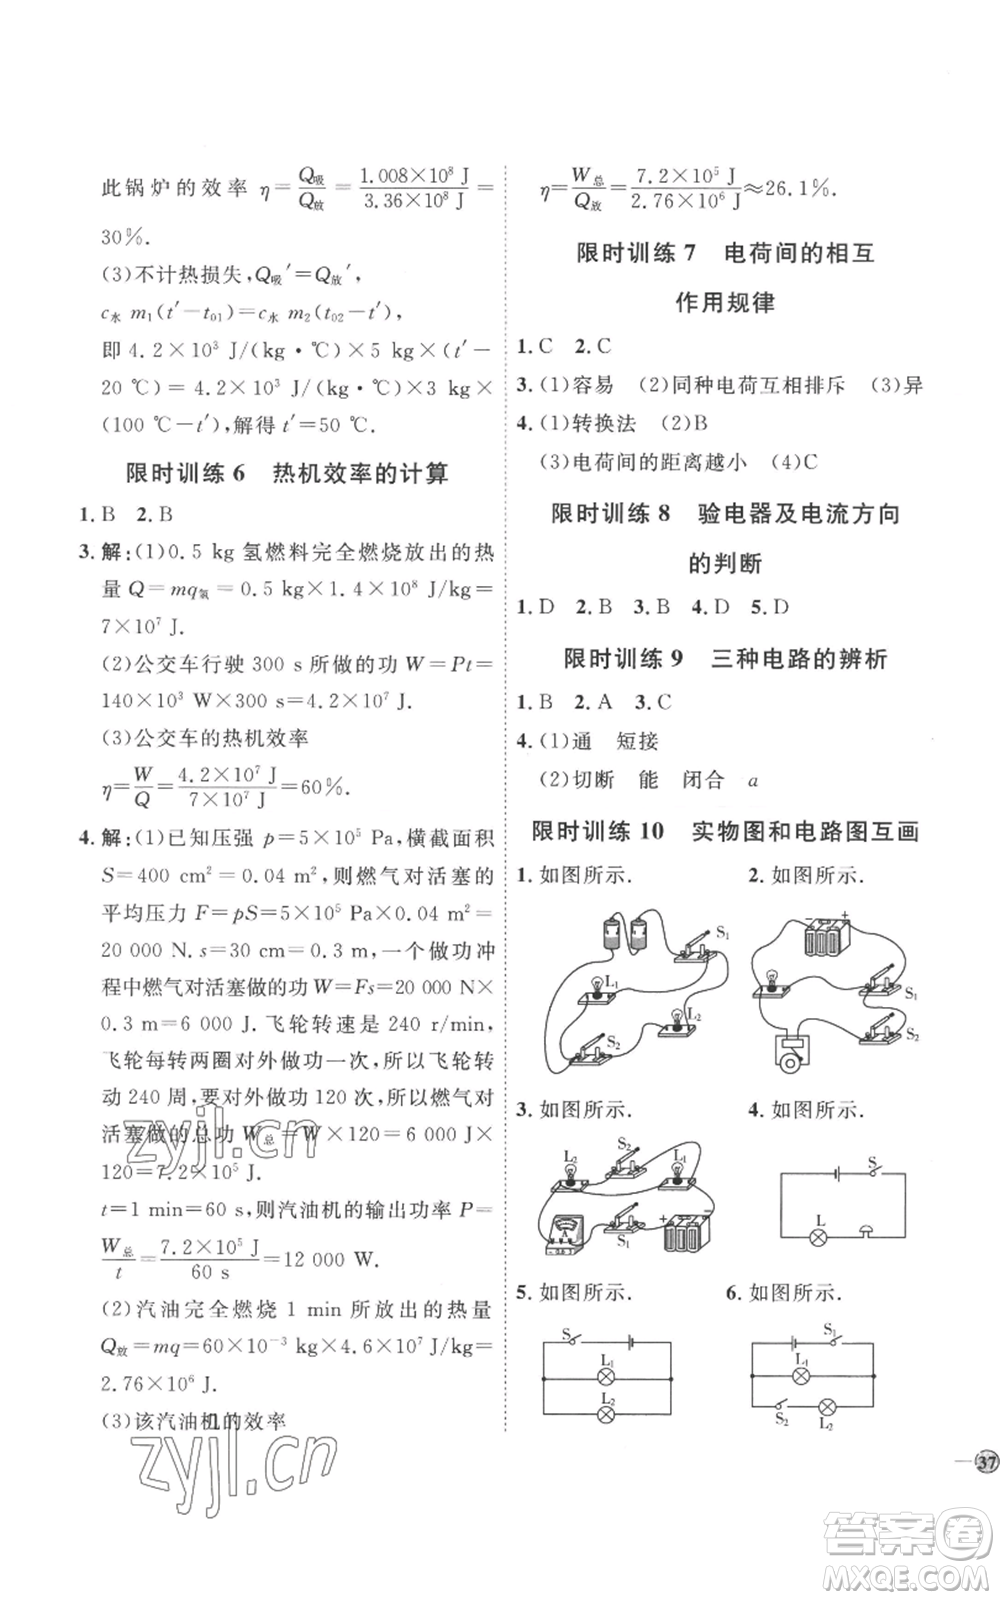 此锅炉的效率 η=Q吸/Q放=1.008×10⁸ J/3.36×10⁸ J=
30%.
(3)不计热损失,Q吸′=Q放′,
c水 m₁(t′−t₀₁)=c水 m₂(t₀₂−t′),
即 4.2×10³ J/(kg·℃)×5 kg×(t′−
20 ℃)=4.2×10³ J/(kg·℃)×3 kg×
(100 ℃−t′),解得 t′=50 ℃.
限时训练 6 热机效率的计算
1. B 2. B
3. 解:(1)0.5 kg 氢燃料完全燃烧放出的热
量 Q=mq氢=0.5 kg×1.4×10⁸ J/kg=
7×10⁷ J.
(2)公交车行驶 300 s 所做的功 W=Pt=
140×10³ W×300 s=4.2×10⁷ J.
(3)公交车的热机效率
η=W/Q=4.2×10⁷ J/7×10⁷ J=60%.
4. 解:(1)已知压强 p=5×10⁵ Pa,横截面积
S=400 cm²=0.04 m²,则燃气对活塞的
平均压力 F=pS=5×10⁵ Pa×0.04 m²=
20 000 N. s=30 cm=0.3 m,一个做功冲
程中燃气对活塞做的功 W=Fs=20 000 N×
0.3 m=6 000 J.飞轮转速是 240 r/min,
飞轮每转两圈对外做功一次,所以飞轮转
动 240 周,要对外做功 120 次,所以燃气对
活塞做的总功 W总=W×120=6 000 J×
120=7.2×10⁵ J.
t=1 min=60 s,则汽油机的输出功率 P=
W总/t=7.2×10⁵ J/60 s=12 000 W.
(2)汽油完全燃烧 1 min 所放出的热量
Q放=mq=60×10⁻³ kg×4.6×10⁷ J/kg=
2.76×10⁶ J.
(3)该汽油机的效率
η=W总/Q放=7.2×10⁵ J/2.76×10⁶ J≈26.1%.
限时训练 7 电荷间的相互
作用规律
1. C 2. C
3. (1)容易 (2)同种电荷互相排斥 (3)异
4. (1)转换法 (2)B
(3)电荷间的距离越小 (4)C
限时训练 8 验电器及电流方向
的判断
1. D 2. B 3. B 4. D 5. D
限时训练 9 三种电路的辨析
1. B 2. A 3. C
4. (1)通 短接
(2)切断 能 闭合 a
限时训练 10 实物图和电路图互画
1. 如图所示. 2. 如图所示.
S₁
L₁
L₂
S₂
− +
S₁
S₂
3. 如图所示. 4. 如图所示.
S₂
L₂
L₁
A
S₁
+ −
S
L
5. 如图所示. 6. 如图所示.
S
L₁
L₂
S₁
L₁
S₂
L₂
37
zyjl.cn
zyjl.cn
答案卷
MXQE.COM